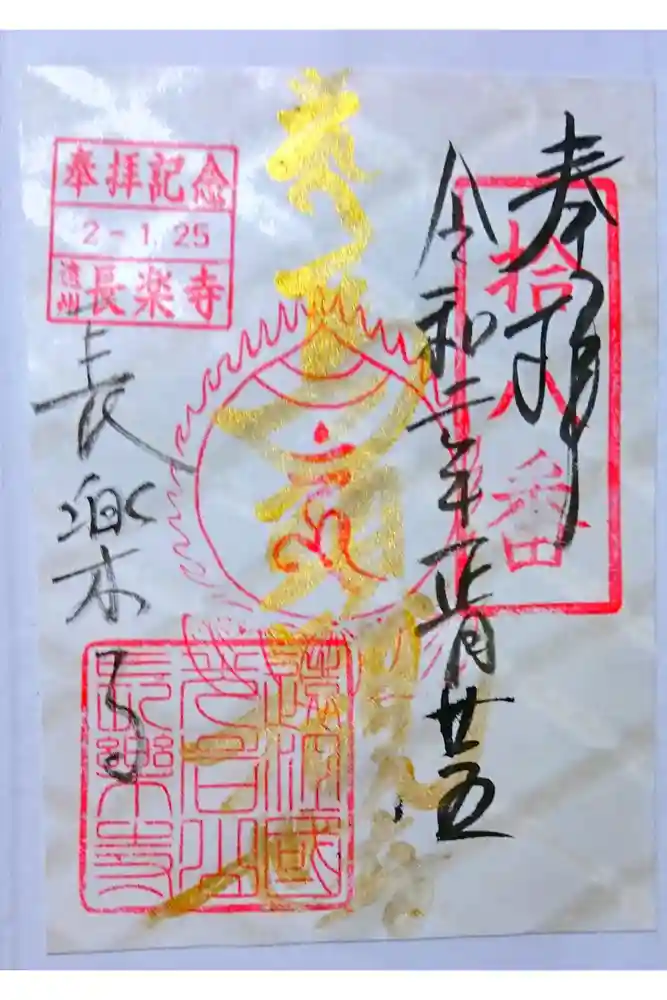 奉拝
拾八番
令和二年正月廿五
奉拝記念
2-1.25
遠州 長楽寺
長楽寺
遠江國
長樂寺